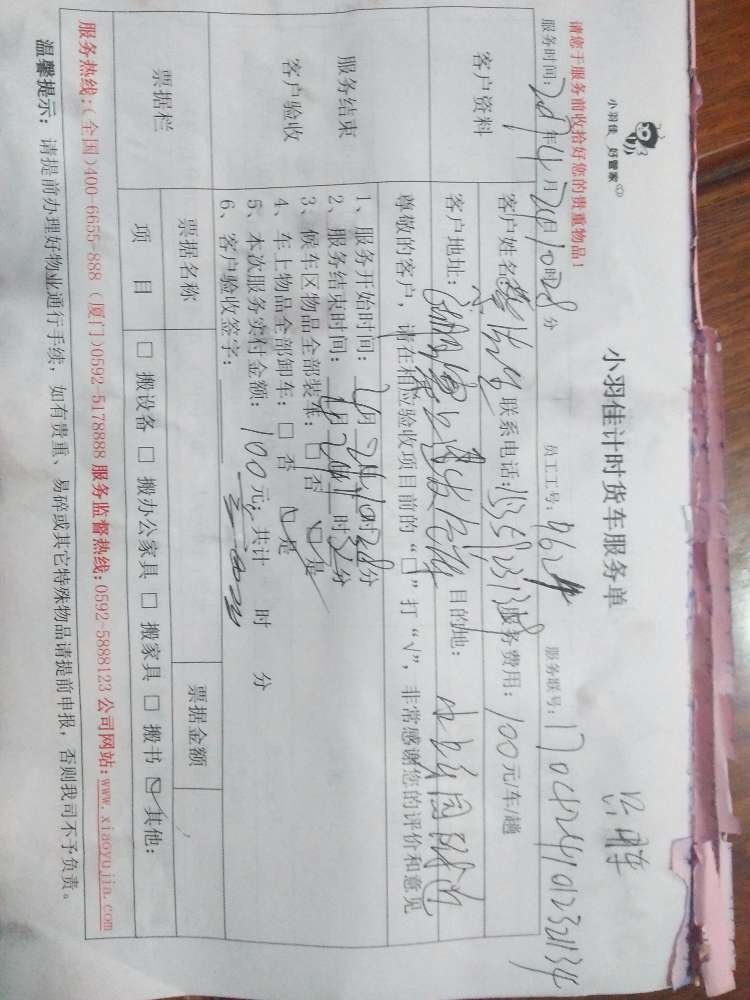 小羽佳 好管家
小羽佳计时货车服务单
请您于服务前收拾好您的贵重物品！
员工工号：9624
服务联号：170424101232134
服务时间： 年4月24日10时28分
客户资料
客户姓名： 联系电话： 服务费用：100元/车/趟
客户地址： 目的地：
服务结束
客户验收
尊敬的客户，请在相应验收项目前的“□”打“√”，非常感谢您的评价和意见
1、服务开始时间：4月24日10时28分
2、服务结束时间：4月24日 时 分
3、候车区物品全部装车：□否 ☑是
4、车上物品全部卸车：□否 ☑是
5、本次服务实付金额：100元；共计 时 分
6、客户验收签字：
票据栏
票据名称 票据金额
项目 □搬设备 □搬办公家具 □搬家具 □搬书 ☑其他：
服务热线：（全国）400-6655-888（厦门）0592-5178888 服务监督热线：0592-5888123 公司网站：www.xiaoyujia.com
温馨提示：请提前办理好物业通行手续，如有贵重、易碎或其它特殊物品请提前申报，否则我司不予负责。